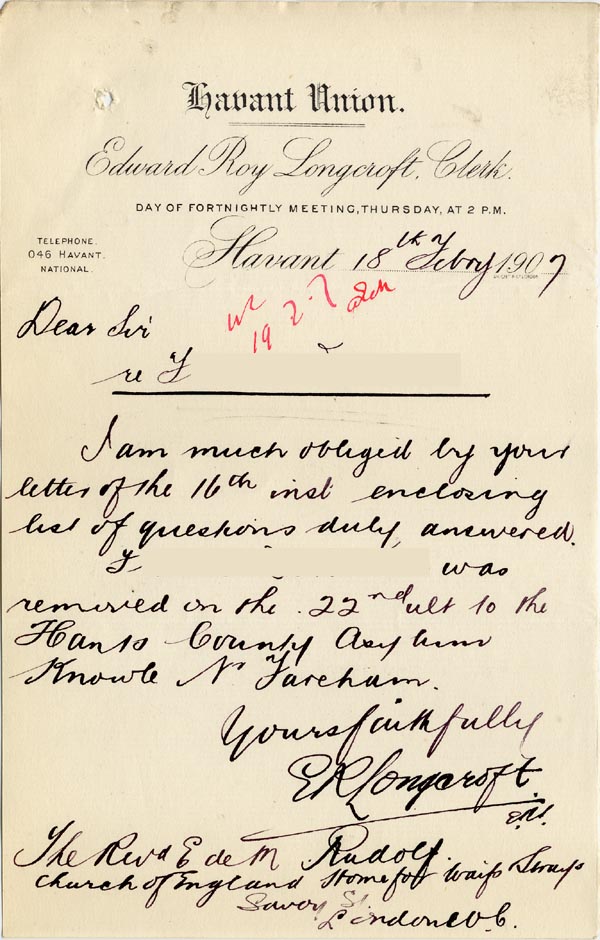 Havant Union.
Edward Roy Longcroft, Clerk.
DAY OF FORTNIGHTLY MEETING, THURSDAY, AT 2 P.M.
TELEPHONE.
046 HAVANT.
NATIONAL.
Havant 18th Febry 1907
19 2.7
Dear Sir
re F
I am much obliged by your
letter of the 16th inst enclosing
list of questions duly answered.
F was
removed on the 22nd ult to the
Hants County Asylum
Knowle Nr Fareham.
Yours faithfully
E R Longcroft
The Revd E de M Rudolf
Church of England Home for Waifs & Strays
Savoy St
London W.C.